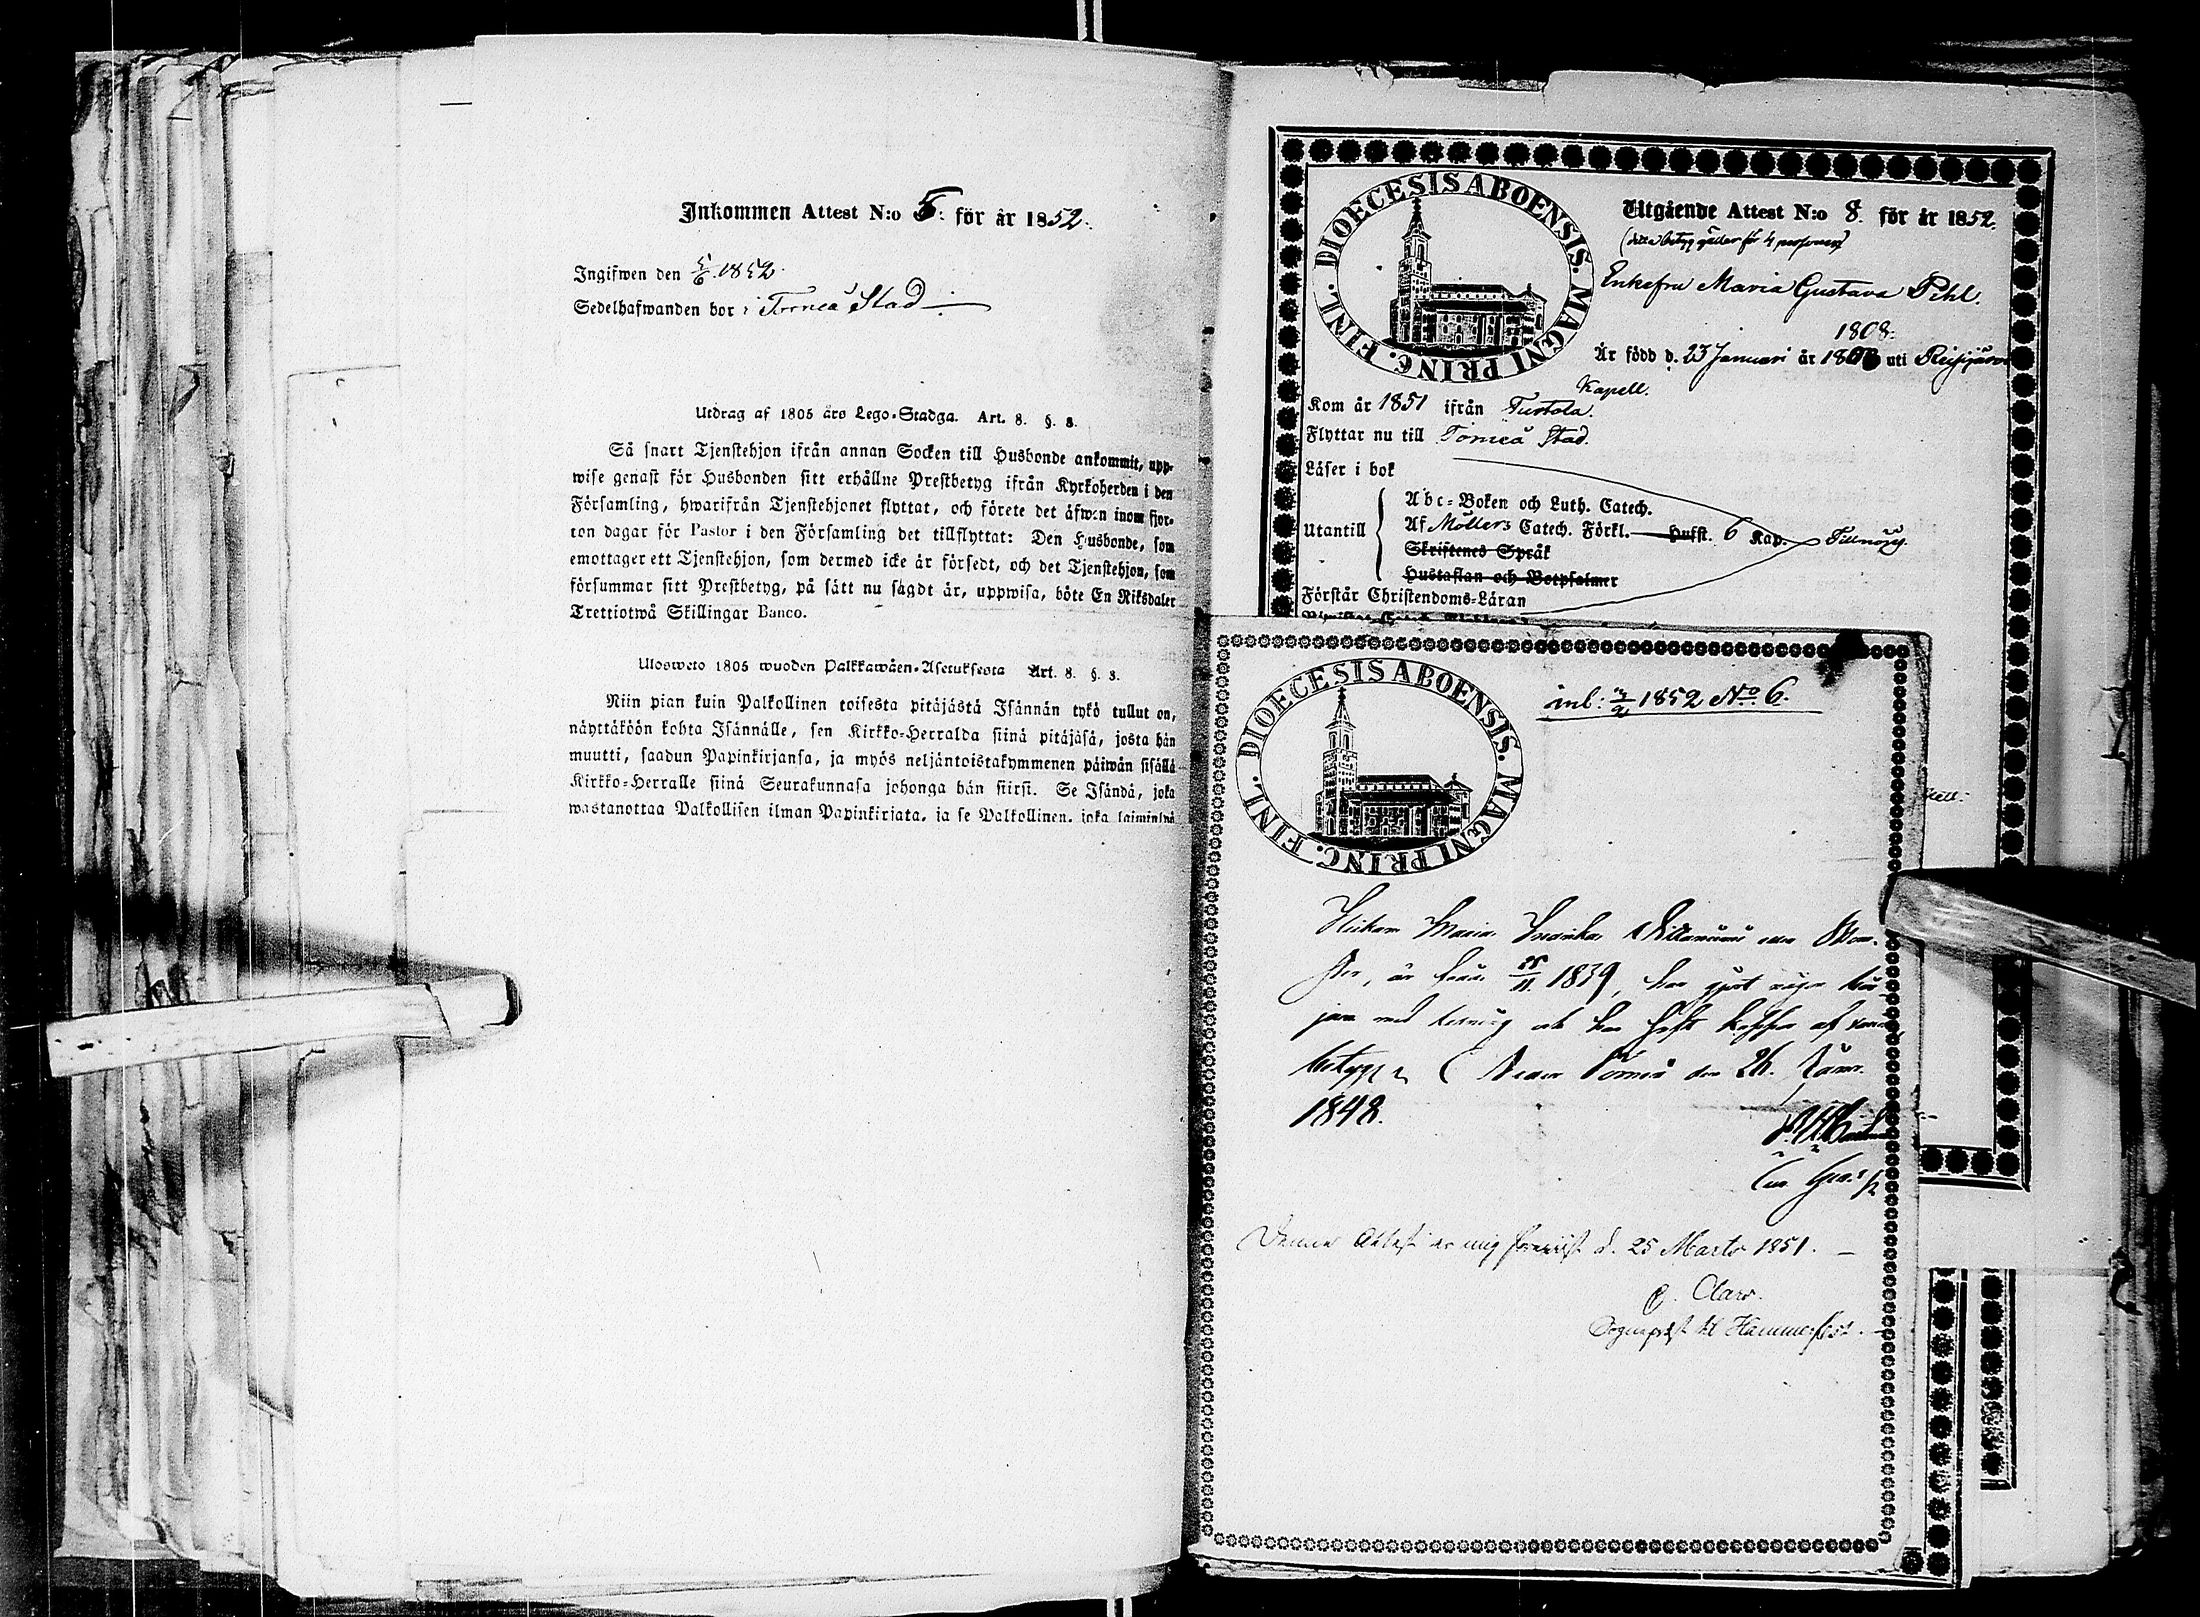 Inkommen Attest N:o 5. för år 1852.
Ingifwen den 5/6 1852.
Sedelhafwanden bor i Torneå Stad
Utdrag af 1805 års Lego-Stadga. Art. 8. §. 8.
Så snart Tjenstehjon ifrån annan Socken till Husbonde ankommit, upp-
wise genast för Husbonden sitt erhållne Prestbetyg ifrån Kyrkoherden i den
Församling, hwarifrån Tjenstehjonet flyttat, och förete det äfwen inom fjor-
ton dagar för Pastor i den Församling det tillflyttat: Den Husbonde, som
emottager ett Tjenstehjon, som dermed icke är försedt, och det Tjenstehjon, som
försummar sitt Prestbetyg, på sätt nu sagdt är, uppwisa, böte En Riksdaler
Trettiotwå Skillingar Banco.
Ulosweto 1805 wuoden Palkkawäen-Asetuksesta Art. 8. §. 8.
Niin pian kuin Palkollinen toisesta pitäjästä Isännän tykö tullut on,
näyttäköön kohta Isännälle, sen Kirkko-Herralda siinä pitäjäsä, josta hän
muutti, saadun Papinkirjansa, ja myös neljäntoistakymmenen päiwän sisällä
Kirkko-Herralle siinä Seurakunnasa johonga hän siirsi. Se Isändä, joka
wastanottaa Palkollisen ilman Papinkirjata, ja se Palkollinen, joka laiminlyö
DIOECESIS ABOENSIS. MAGNI PRINC. FINL.
Utgående Attest N:o 8. för år 1852.
(detta betyg gäller för 4 personer)
Enkefru Maria Gustava Pihl.
1808.
Är född d. 23 Januari år 18 uti Reisjärvi
Kapell.
Kom år 1851 ifrån
Flyttar nu till Torneå Stad.
Läser i bok
Utantill
Abc-Boken och Luth. Catech.
Af Möllers Catech. Förkl. Hufst. 6 Kap.
Skriftenes Språk
Hustaflan och Botpsalmer
Förstår Christendoms-Läran
DIOECESIS ABOENSIS. MAGNI PRINC. FINL.
inl: 1852 No 6.
Maria
är född 25/11 1839, har gjort någon bör-
jan med läsning och har haft koppor af
betygas Neder Torneå den 26.
1848.
Denne Attest er mig foreviist d. 25 Marts 1851.
Clar
Sognepræst til Hammerfest.